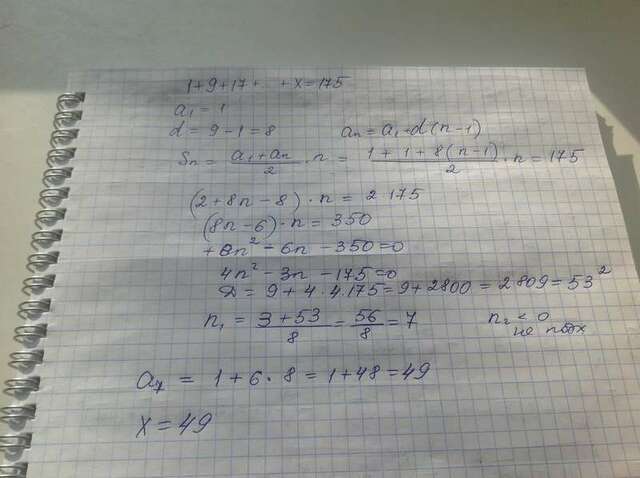 1+9+17+ . . +x=175
a₁ = 1
d = 9-1=8 aₙ = a₁+d(n-1)
Sₙ = (a₁+aₙ)/2 · n = (1+1+8(n-1))/2 · n = 175
(2+8n-8)·n = 2 175
(8n-6)·n = 350
+8n²-6n-350=0
4n²-3n-175=0
D = 9+4·4·175=9+2800=2809=53²
n₁ = (3+53)/8 = 56/8 = 7 n₂<0
не подх
a₇ = 1+6·8=1+48=49
x=49